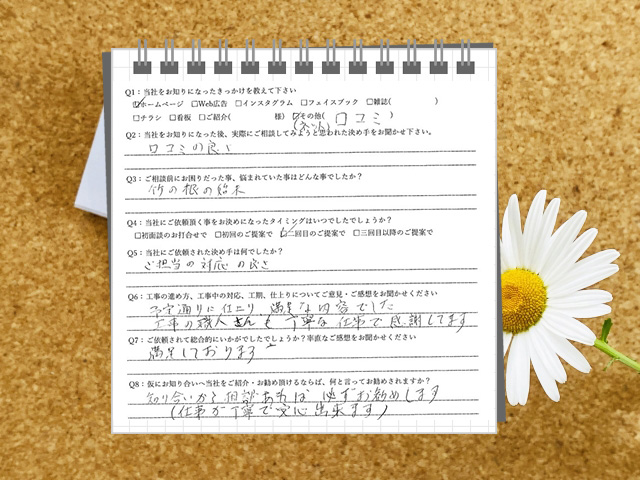 Q1：当社をお知りになったきっかけを教えて下さい
☑ホームページ □Web広告 □インスタグラム □フェイスブック □雑誌( )
□チラシ □看板 □ご紹介( 様) ☑その他( 口コミ )
(ネット)
Q2：当社をお知りになった後、実際にご相談してみようと思われた決め手をお聞かせ下さい。
口コミの良さ
Q3：ご相談前にお困りだった事、悩まれていた事はどんな事でしたか？
竹の根の始末
Q4：当社にご依頼頂く事をお決めになったタイミングはいつでしたでしょうか？
□初面談のお打合せで □初回のご提案で ☑二回目のご提案で □三回目以降のご提案で
Q5：当社にご依頼された決め手は何でしたか？
ご担当の対応の良さ
Q6：工事の進め方、工事中の対応、工期、仕上りについてご意見・ご感想をお聞かせください
予定通りに仕上り、満足な内容でした
工事の職人さんも丁寧な仕事で感謝してます
Q7：ご依頼されて総合的にいかがでしたでしょうか？率直なご感想をお聞かせください
満足しております
Q8：仮にお知り合いへ当社をご紹介・お勧め頂けるならば、何と言ってお勧めされますか？
知り合いから相談あれば 必ずお勧めします
(仕事が丁寧で安心出来ます)